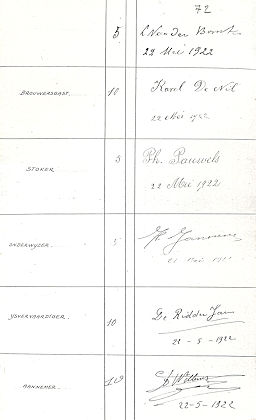 72
5 L Van den Borst
22 Mei 1922
BROUWERSGAST. 10 Karel De Nil
22 Mei 1922
STOKER 5 Ph. Pauwels
22 Mei 1922
ONDERWYZER. 5 Janssens
21 Mei 1922
YSVERVAARDIGER 10 De Ridder Jan
22 - 5 - 1922
AANNEMER. 10 Willems
22-5-1922